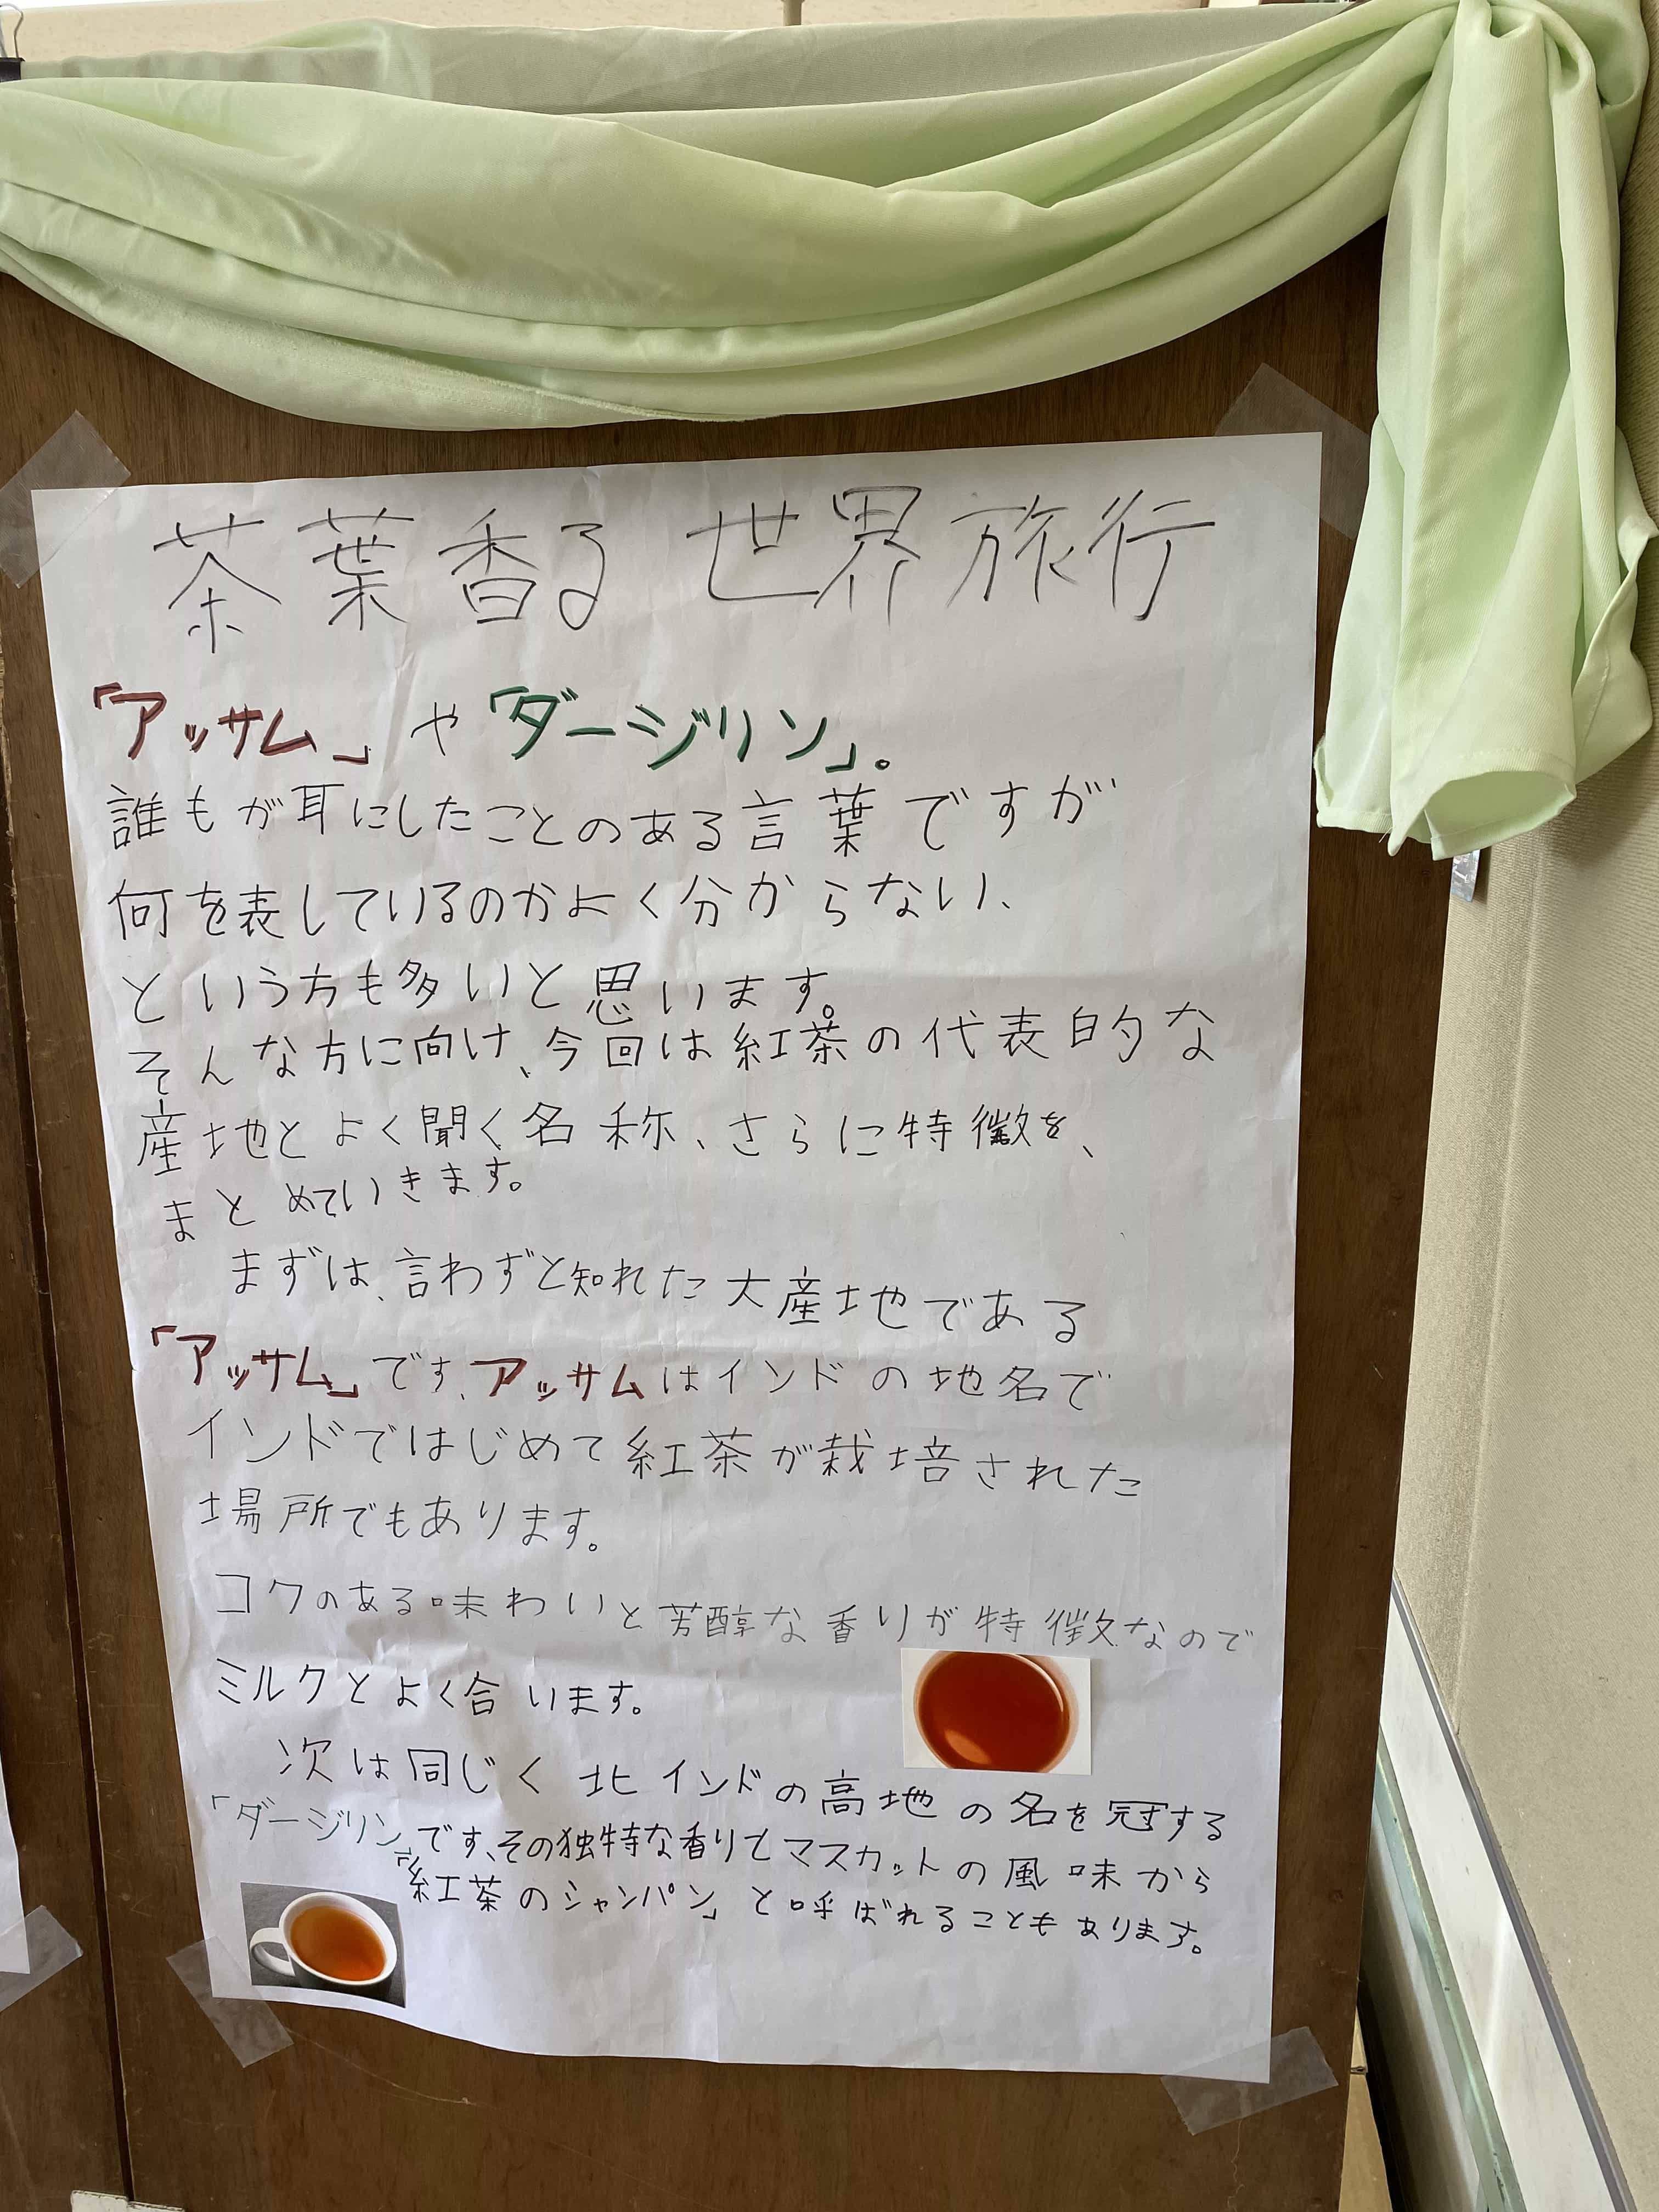 茶葉香る 世界旅行
「アッサム」や「ダージリン」。
誰もが耳にしたことのある言葉ですが
何を表しているのかよく分からない、
という方も多いと思います。
そんな方に向け、今回は紅茶の代表的な
産地とよく聞く名称、さらに特徴を、
まとめていきます。
まずは、言わずと知れた大産地である
「アッサム」です、アッサムはインドの地名で
インドではじめて紅茶が栽培された
場所でもあります。
コクのある味わいと芳醇な香りが特徴なので
ミルクとよく合います。
次は同じく北インドの高地の名を冠する
「ダージリン」です、その独特な香りとマスカットの風味から
「紅茶のシャンパン」と呼ばれることもあります。